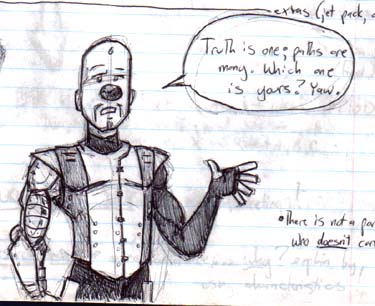 extras (jet pack,
Truth is one; paths are
many. Which one
is yours? Yaw.
•There is not a
who doesn't
explain by,
use, characteristics